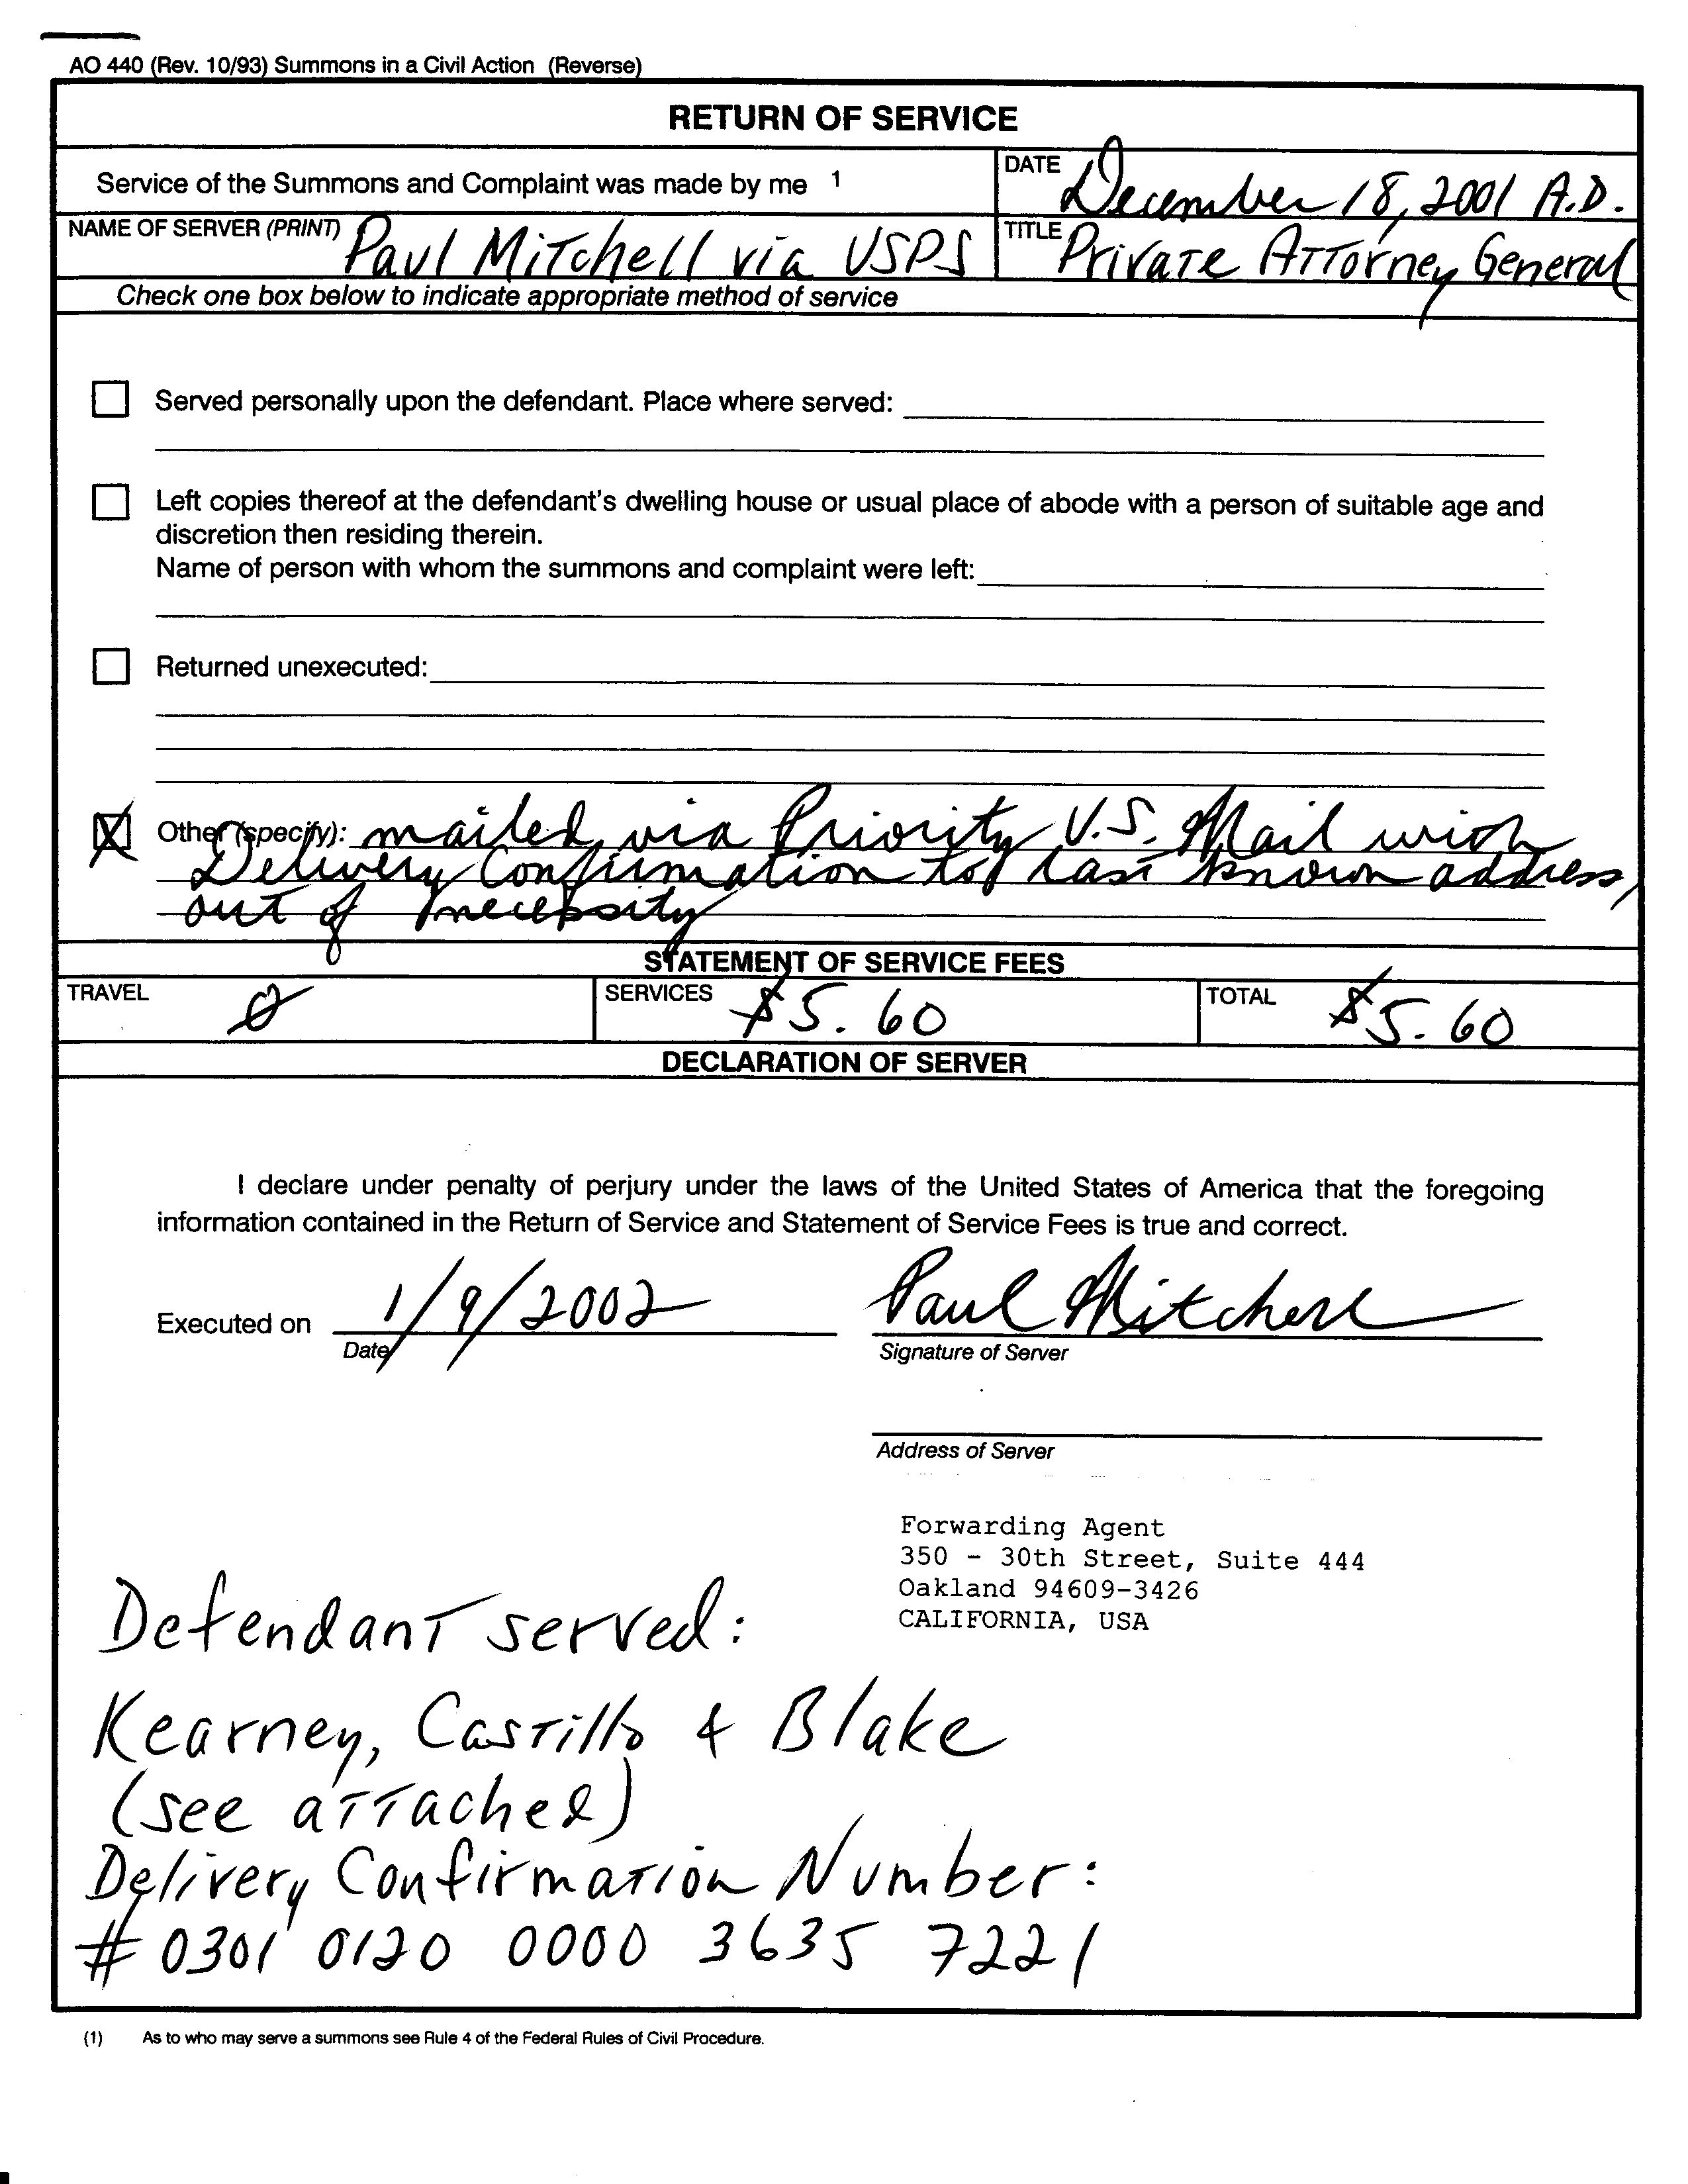 AO 440 (Rev. 10/93) Summons in a Civil Action (Reverse)
RETURN OF SERVICE
Service of the Summons and Complaint was made by me 1
DATE December 18, 2001 A.D.
NAME OF SERVER (PRINT) Paul Mitchell via USPS
TITLE Private Attorney General
Check one box below to indicate appropriate method of service
Served personally upon the defendant. Place where served:
Left copies thereof at the defendant's dwelling house or usual place of abode with a person of suitable age and
discretion then residing therein.
Name of person with whom the summons and complaint were left:
Returned unexecuted:
X Other (specify): mailed via Priority U.S. Mail with
Delivery Confirmation to last known address,
out of necessity
STATEMENT OF SERVICE FEES
TRAVEL 0
SERVICES $5.60
TOTAL $5.60
DECLARATION OF SERVER
I declare under penalty of perjury under the laws of the United States of America that the foregoing
information contained in the Return of Service and Statement of Service Fees is true and correct.
Executed on 1/9/2002 Paul Mitchell
Date Signature of Server
Address of Server
Forwarding Agent
350 - 30th Street, Suite 444
Oakland 94609-3426
CALIFORNIA, USA
Defendant served:
Kearney, Castillo & Blake
(see attached)
Delivery Confirmation Number:
# 0301 0120 0000 3635 7221
(1) As to who may serve a summons see Rule 4 of the Federal Rules of Civil Procedure.